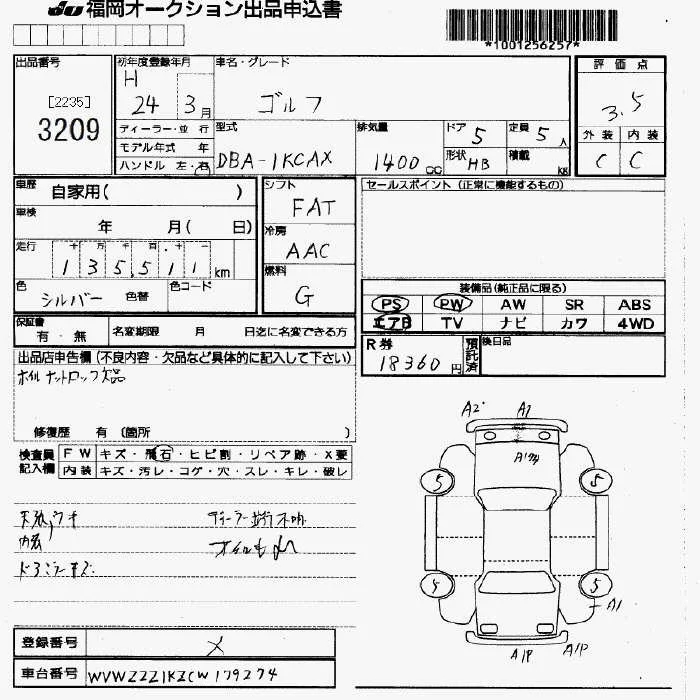 JU 福岡オークション出品申込書
*1001256257*
出品番号
[2235]
3209
初年度登録年月
H
24 3月
ディーラー・並 行
モデル年式 年
ハンドル 左・右
車名・グレード
ゴルフ
型式
DBA-1KCAX
排気量
1400 cc
ドア 5
定員 5人
形状 HB
積載 kg
評価点
3.5
外装 内装
C C
車歴
自家用( )
車検
年 月( 日)
走行
十 万 千 百 十 一
135,511 km
色
シルバー 色替
色コード
シフト
FAT
冷房
AAC
燃料
G
セールスポイント (正常に機能するもの)
装備品(純正品に限る)
PS PW AW SR ABS
エアB TV ナビ カワ 4WD
保証書
有・無
名変期限 月 日迄に名変できる方
R券
18360円
預託済
後日品
出品店申告欄 (不良内容・欠品など具体的に記入して下さい)
ホイルナットロック欠品
修復歴 有 (箇所 )
検査員記入欄
FW キズ・飛石・ヒビ割・リペア跡・X要
内装 キズ・汚レ・コゲ・穴・スレ・キレ・破レ
ディーラー並行不明
内装
A2 A1
5 5
5 5
A1
A1P A1P
登録番号 メ
車台番号 WVWZZZ1KZCW179274